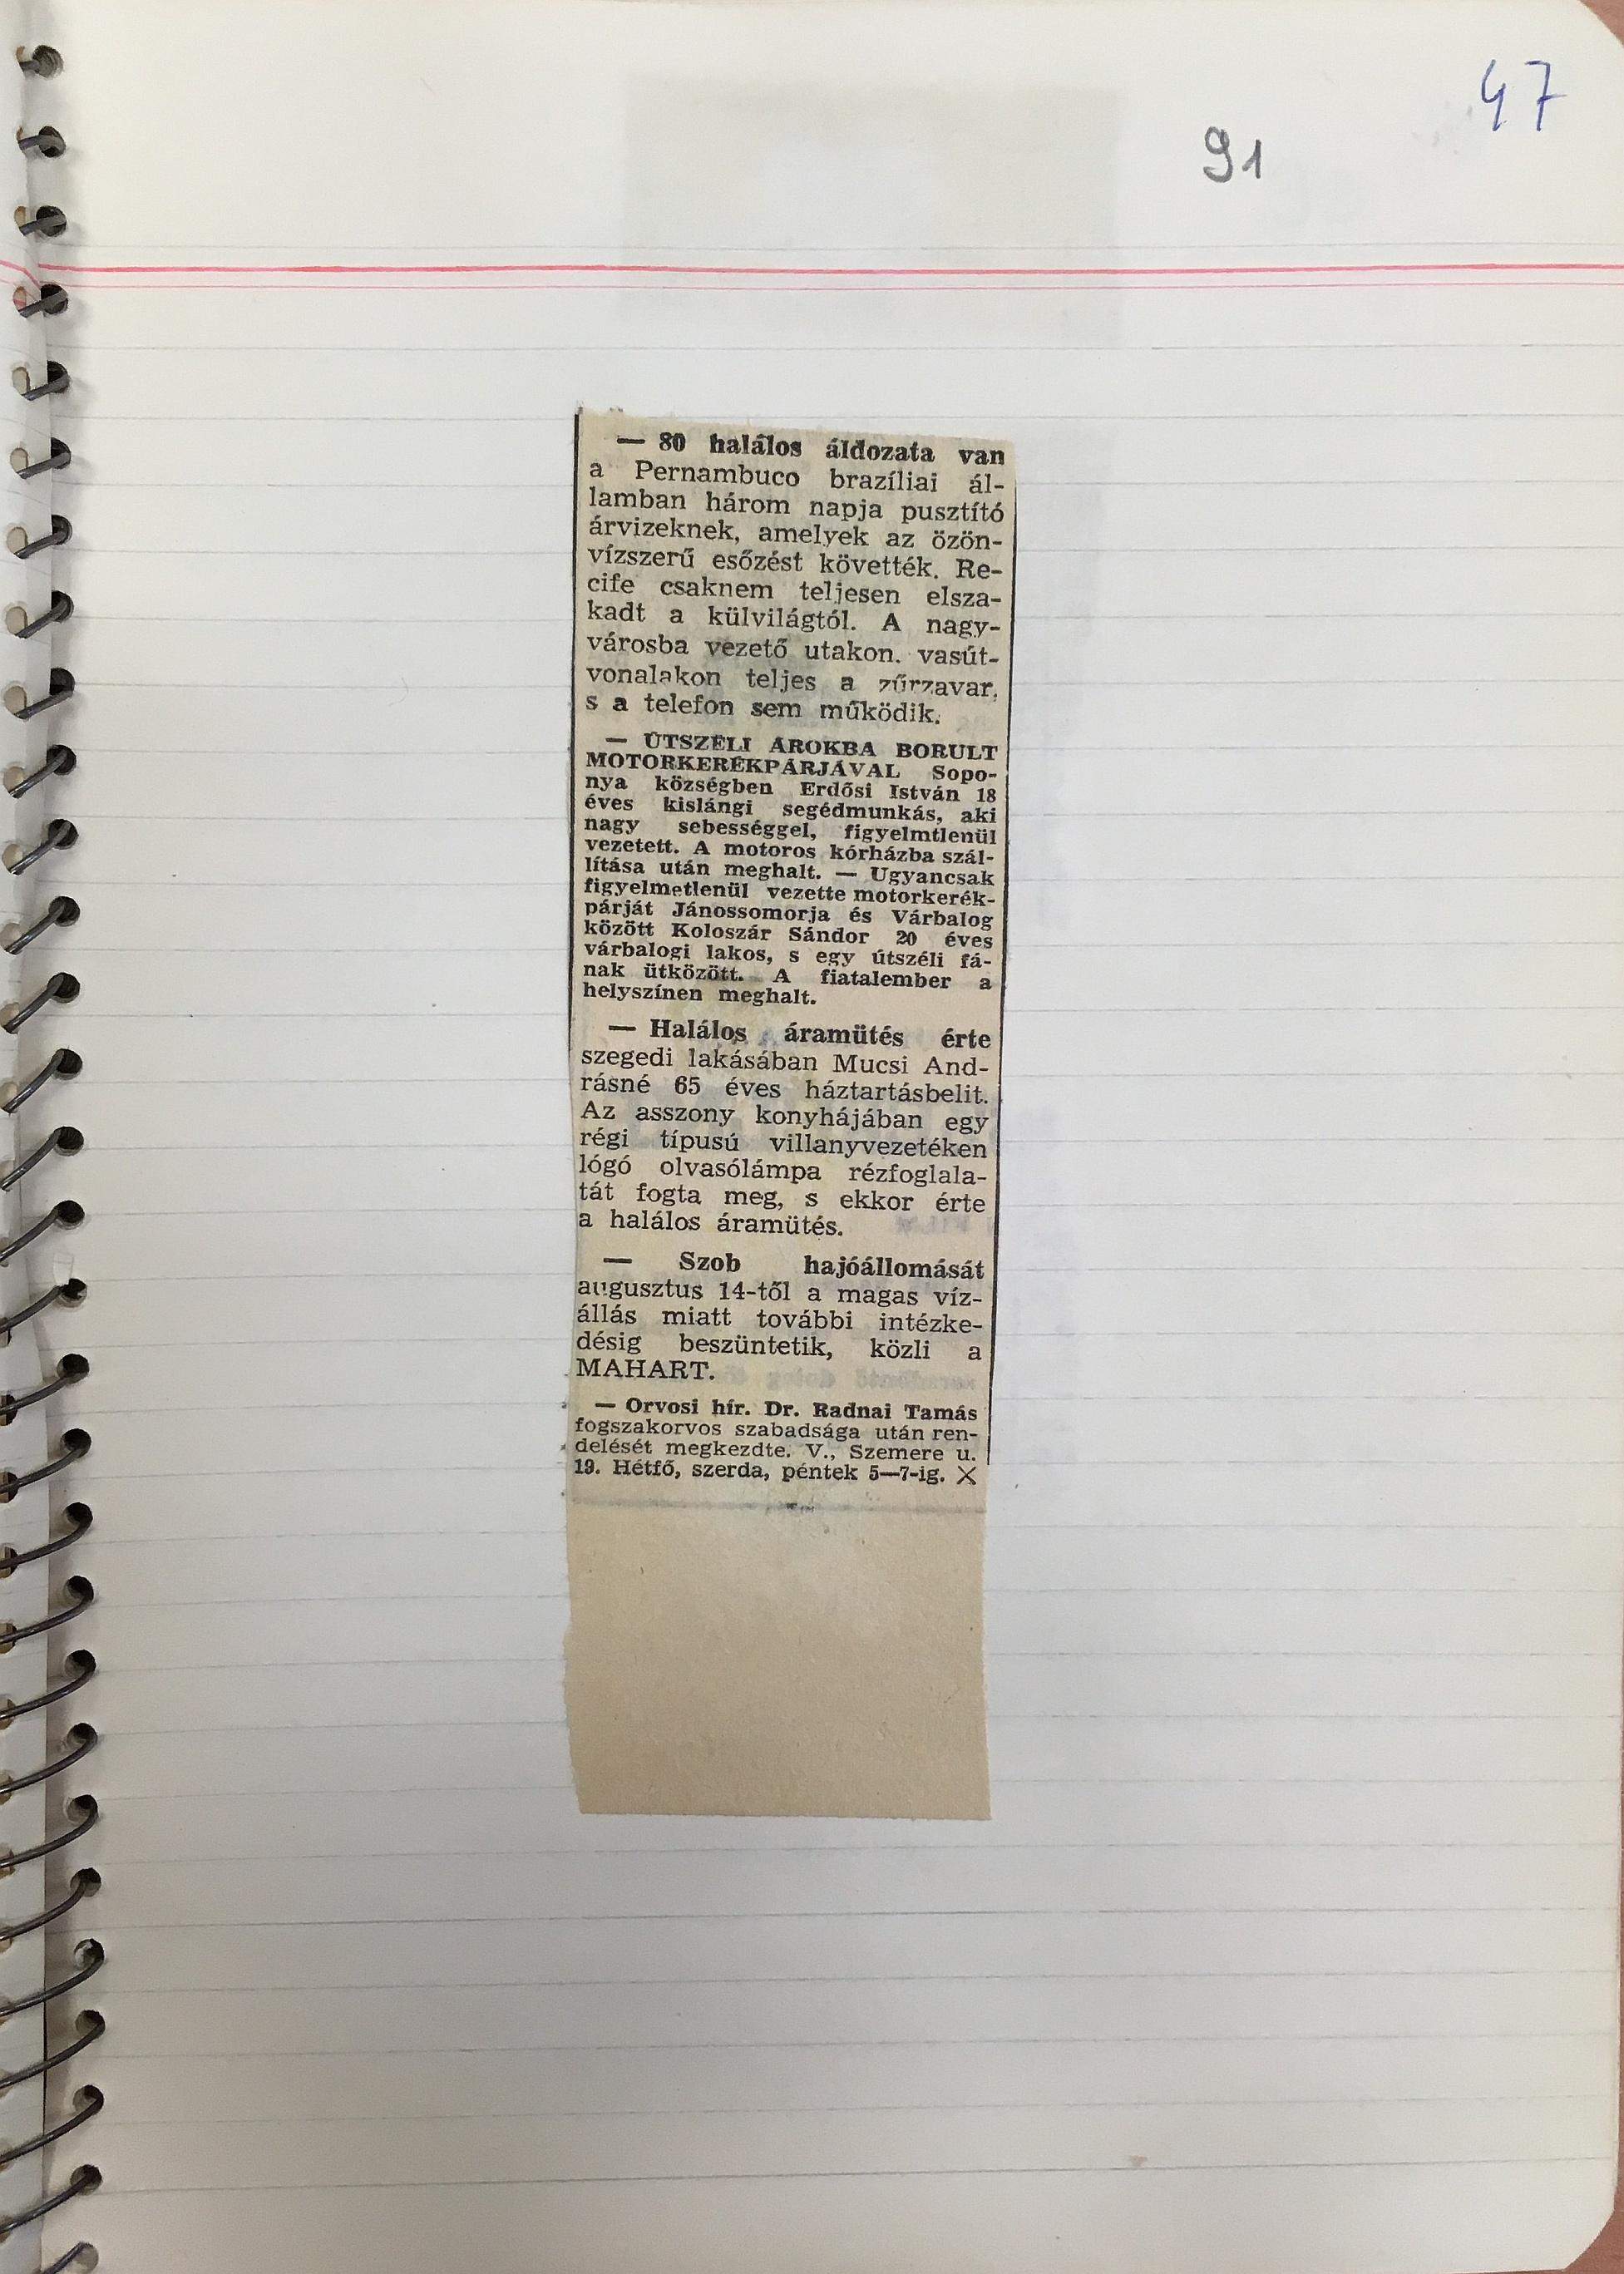 47
91
— 80 halálos áldozata van
a Pernambuco brazíliai ál-
lamban három napja pusztító
árvizeknek, amelyek az özön-
vízszerű esőzést követték. Re-
cife csaknem teljesen elsza-
kadt a külvilágtól. A nagy-
városba vezető utakon. vasút-
vonalakon teljes a zűrzavar,
s a telefon sem működik.
— ÚTSZÉLI ÁROKBA BORULT
MOTORKERÉKPÁRJÁVAL Sopo-
nya községben Erdősi István 18
éves kislángi segédmunkás, aki
nagy sebességgel, figyelmtlenül
vezetett. A motoros kórházba szál-
lítása után meghalt. — Ugyancsak
figyelmetlenül vezette motorkerék-
párját Jánossomorja és Várbalog
között Koloszár Sándor 20 éves
várbalogi lakos, s egy útszéli fá-
nak ütközött. A fiatalember a
helyszínen meghalt.
— Halálos áramütés érte
szegedi lakásában Mucsi And-
rásné 65 éves háztartásbelit.
Az asszony konyhájában egy
régi típusú villanyvezetéken
lógó olvasólámpa rézfoglala-
tát fogta meg, s ekkor érte
a halálos áramütés.
— Szob hajóállomását
augusztus 14-től a magas víz-
állás miatt további intézke-
désig beszüntetik, közli a
MAHART.
— Orvosi hír. Dr. Radnai Tamás
fogszakorvos szabadsága után ren-
delését megkezdte. V., Szemere u.
19. Hétfő, szerda, péntek 5—7-ig. X